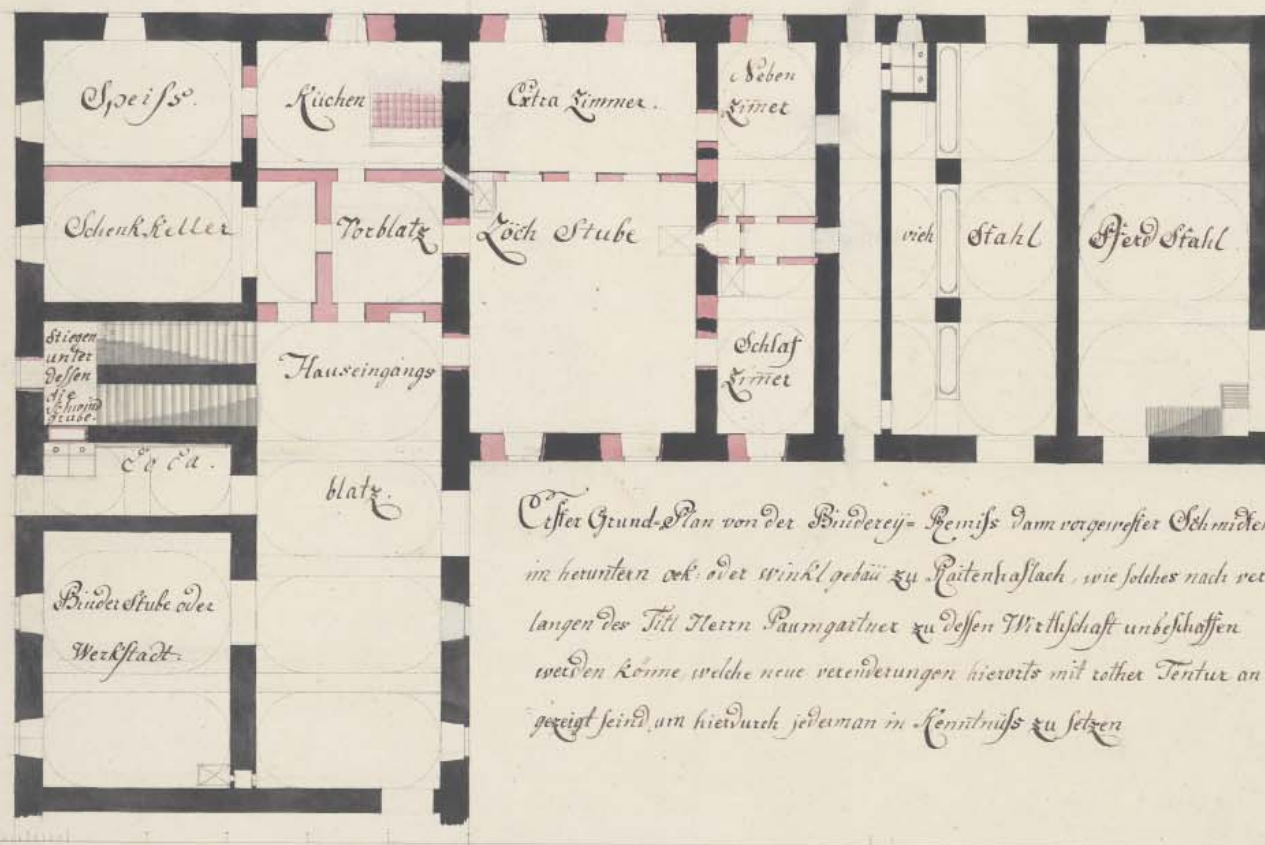 Speiss.
Küchen
Extra Zimmer.
Neben
Zimer
Schenk Keller
Vorblatz
Zöch Stube
vieh Stahl
Pferd Stahl
Stiegen
unter
dessen
die
Schwind
grube.
Hauseingangs
blatz.
Schlaf
Zimer
Loca.
Binder Stube oder
Werkstadt.
Erster Grund-Plan von der Binderey= Remiss dann vorgewester Schmidten
im heruntern oek: oder winkl gebäü zu Raitenhaslach, wie solches nach ver
langen des Titl Herrn Paumgartner zu dessen Wirthschaft unbeschaffen
werden könne, welche neue verenderungen hierorts mit rother Tentur an
gezeigt seind, um hierdurch jederman in Kenntnüss zu setzen